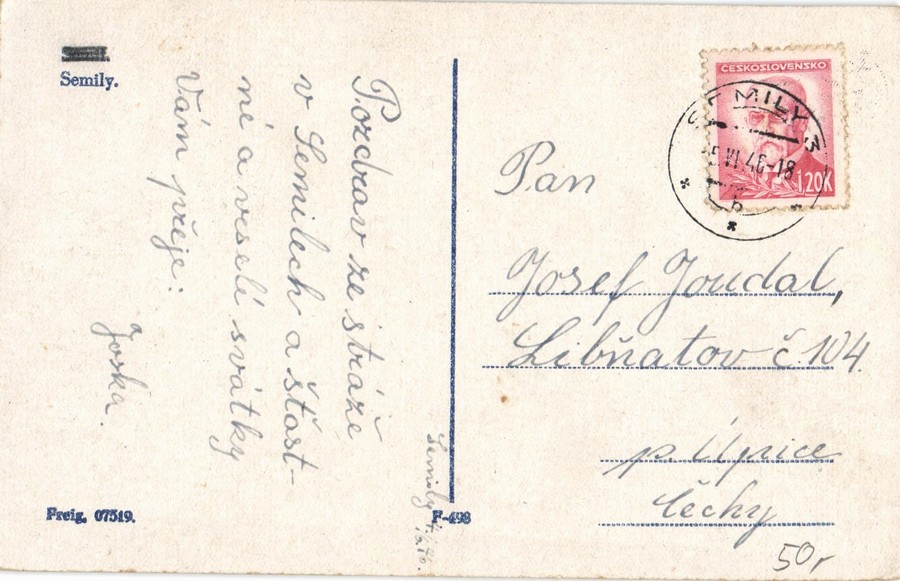 Semily.
Pozdrav ze stráže
v Semilech a šťast-
né a veselé svátky
Vám přeje:
Joska.
Freig. 07519.
F-498
Semily
ČESKOSLOVENSKO
1,20K
SEMILY 3
VI 46-18
b
Pan
Josef Joudal,
Libňatov č 104.
p. Úpice
Čechy
50,